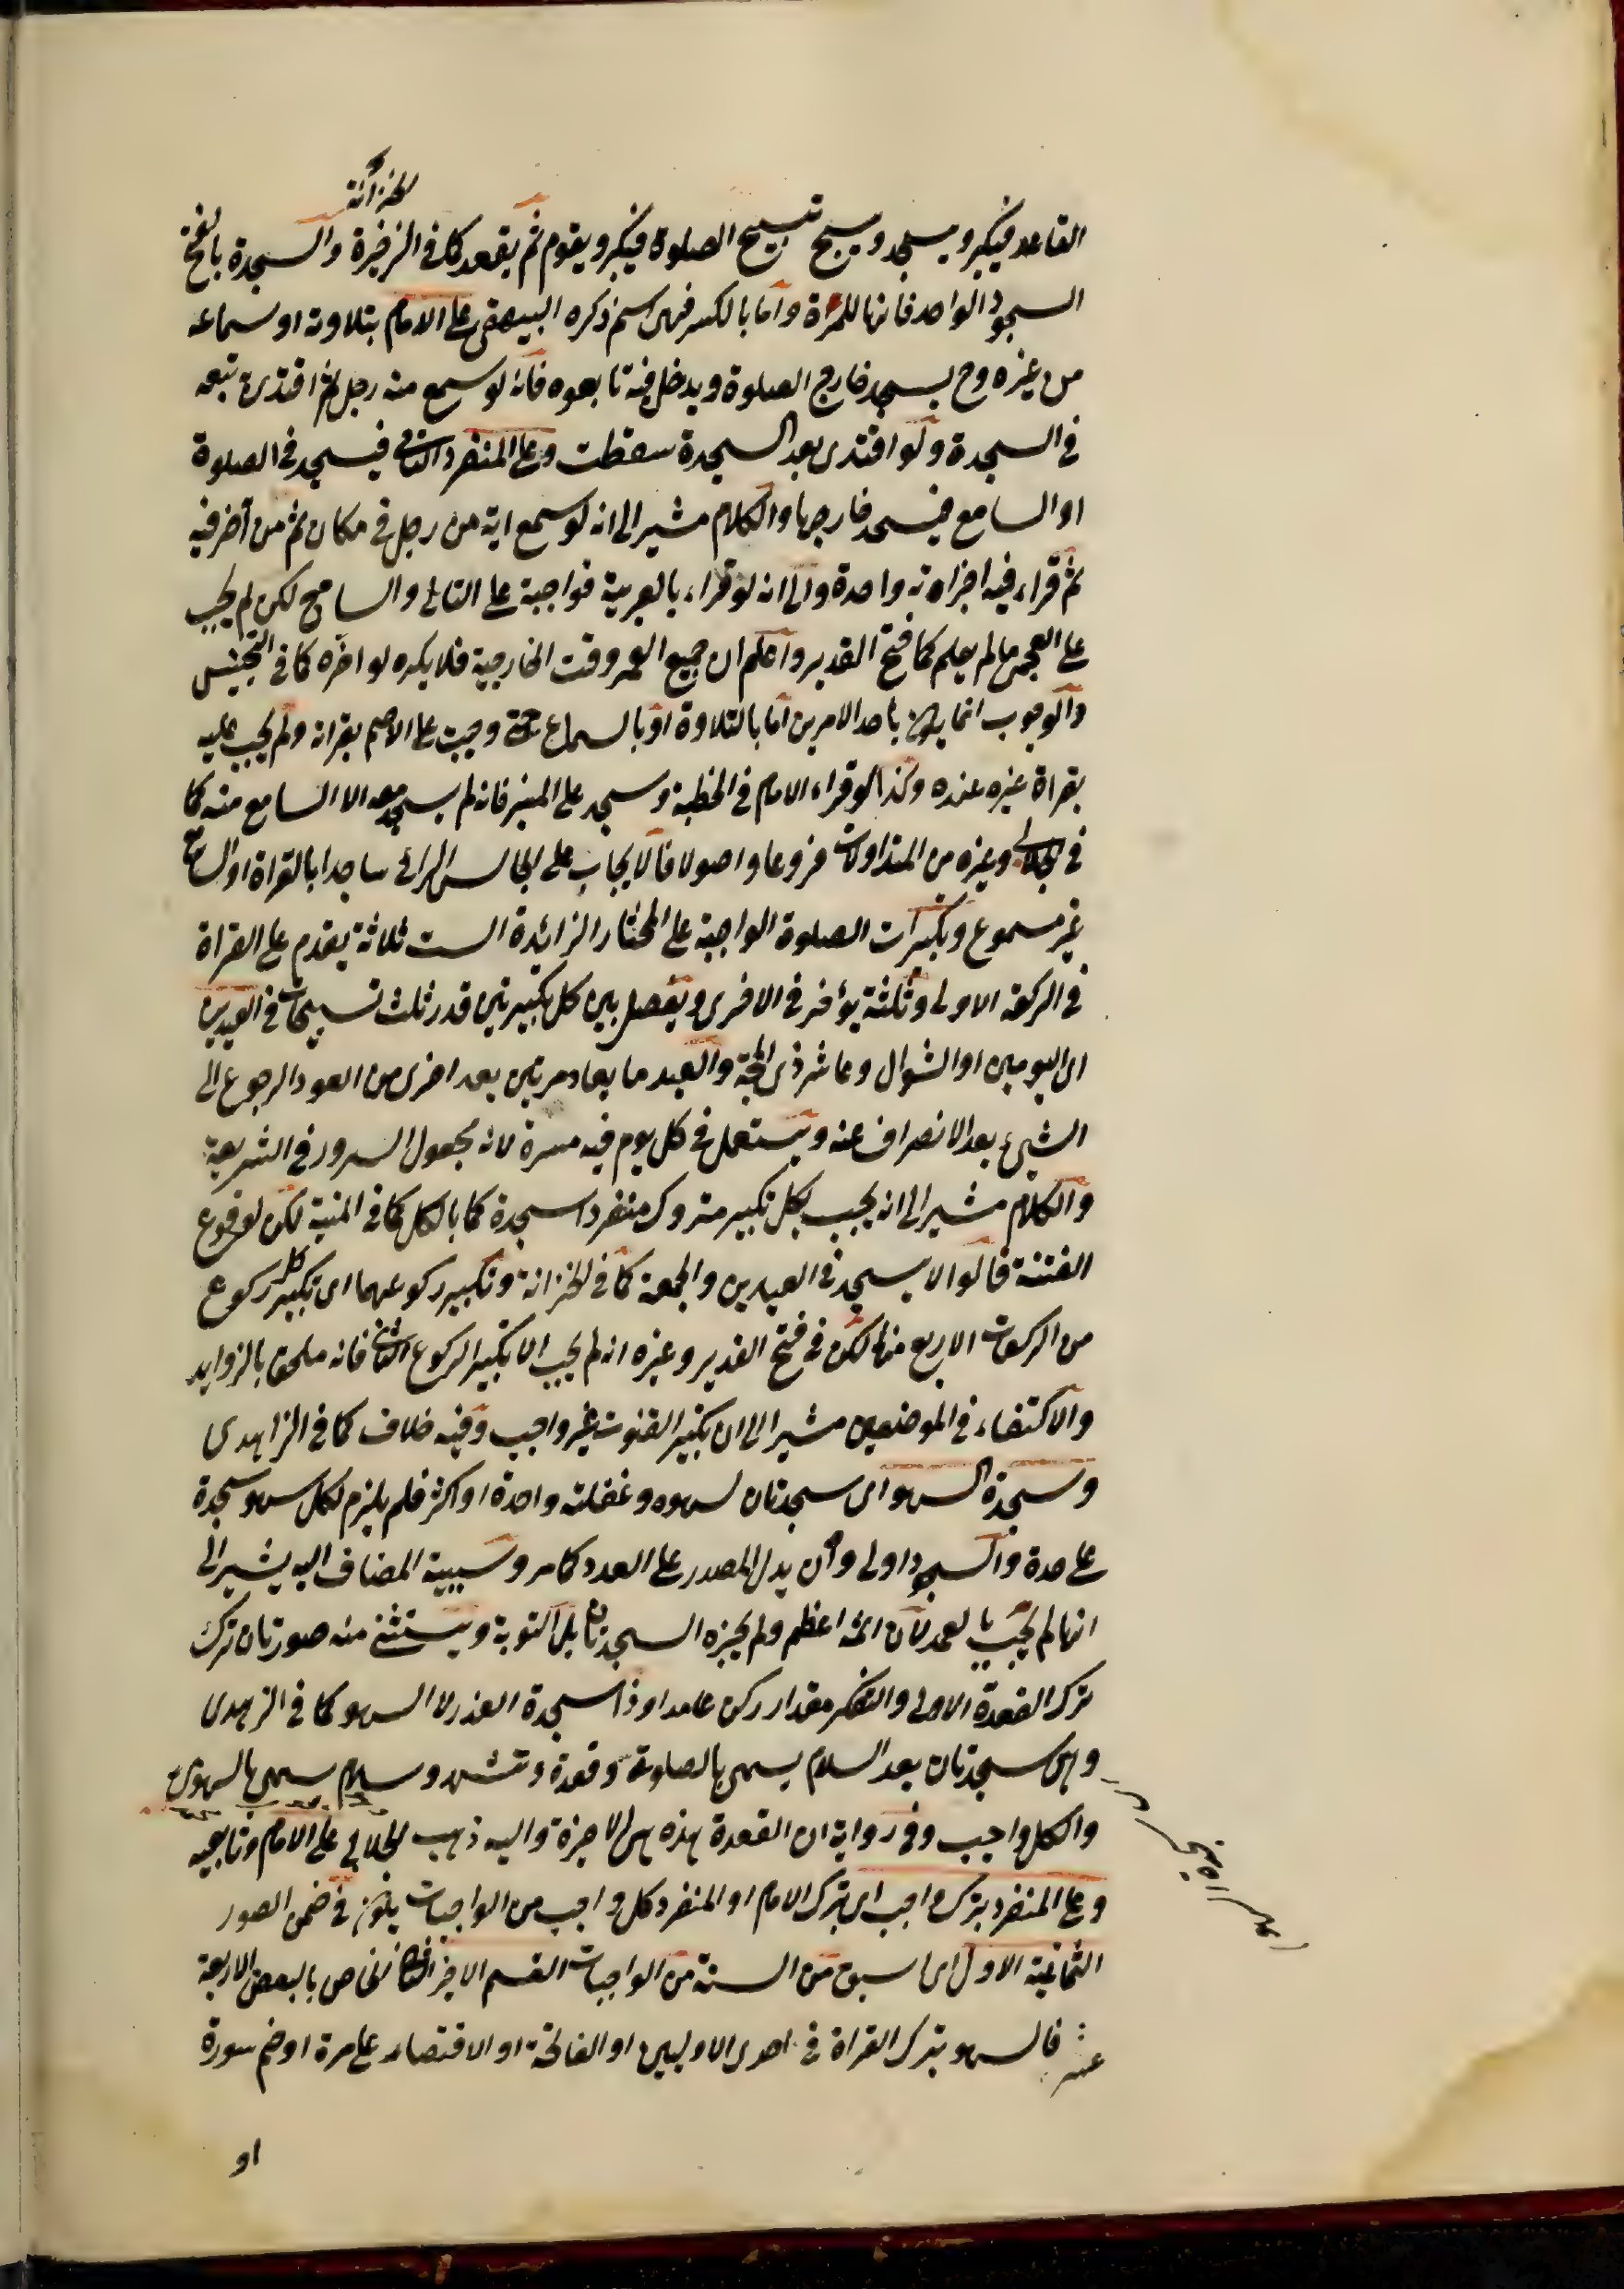 والخزانة
القاعد فيكبر ويسجد ويسبح تسبيح الصلوة فيكبر ويقوم ثم يقعد كما فى الزخيرة والسجدة بالفتح
السجود الواحد فانها للمرة واما بالكسر فهى اسم ذكره البيهقى على الامام بتلاوته او سماعه
من غيره وح يسجد خارج الصلوة ويدخل فيه تابعوه فانه لو سمع منه رجل ثم اقتدى تبعه
فى السجدة ولو اقتدى بعد السجدة سقطت وعلى المنفرد التالى فيسجد فى الصلوة
او السامع فيسجد خارجها والكلام مشير الى انه لو سمع اية من رجل فى مكان ثم من آخر فيه
ثم قراء فيه اجزاءته واحدة والى انه لو قراء بالعربية فواجبة على التالى والسامع لكن لم يجب
على العجمى ما لم يعلم كما فتح القدير واعلم ان جميع العمر وقت الخارجية فلا يكره لو اخره كما فى التجنيس
والوجوب انما يكون باحد الامرين اما بالتلاوة او بالسماع حتى وجبت على الاصم بقراته ولم يجب عليه
بقراة غيره عنده وكذا لو قراء الامام فى الخطبة وسجد على المنبر فانه لم يسجد معه الا السامع منه كما
فى الجلالى وغيره من المتداولات فروعا واصولا فالايجاب على الجالس الرائى ساجدا بالقراة او السامع
غير مسموع وتكبيرات الصلوة الواجبة على المختار الزائدة الست ثلاثة يقدم على القراة
فى الركعة الاولى وثلثة يؤخر فى الاخرى ويفصل بين كل تكبيرتين قدر ثلث تسبيحات فى العيدين
اى اليومين او الشوال وعاشر ذى الحجة والعيد ما يعاد مرتين بعد اخرى من العود الرجوع الى
الشىء بعد الانصراف عنه ويستعمل فى كل يوم فيه مسرة لانه مجعول السرور فى الشريعة
والكلام مشير الى انه يجب بكل تكبير متروك منفردا سجدة كما بالكل كما فى المنية لكن لوقوع
الفتنة قالوا لا يسجد فى العيدين والجمعة كما فى الخزانة وتكبير ركوعهما اى تكبير كل ركوع
من الركعات الاربع منها لكن فى فتح القدير وغيره انه لم يجب الا تكبير الركوع الثانى فانه ملحق بالزوايد
والاكتفاء فى الموضعين مشير الى ان تكبير القنوت غير واجب وفيه خلاف كما فى الزاهدى
وسجدة السهو اى سجدتان لسهوه وغفلته واحدة او اكثر فلم يلزم لكل سهو سجدة
على حدة والسجود اولى وان يدل المصدر على العدد كما مر وسببية المضاف اليه يشير الى
انها لم يجب بالعمد لان اثمه اعظم ولم يجبره السجدتان بل التوبة ويستثنى منه صورتان ترك
ترك القعدة الاولى والتفكر مقدار ركن عامدا وذا سجدة العذر لا السهو كما فى الزهدى
وهى سجدتان بعد السلام يسمى بالصلوة وقعدة وتشهد وسلام يسمى بالسهوى
والكل واجب وفى رواية ان القعدة هذه هى الاخيرة واليه ذهب الجلالى على الامام وتابعيه
وعلى المنفرد بترك واجب اى بترك الامام او المنفرد كل واجب من الواجبات يكون فى ضمن الصور
الثمانية الاول اى اسبق من الستة من الواجبات القسم الاخير الثانى الخاص بالبعض الاربعة
عشر فالسهو بترك القراة فى احدى الاوليين او الفاتحة او الاقتصار على مرة او ضم سورة
او